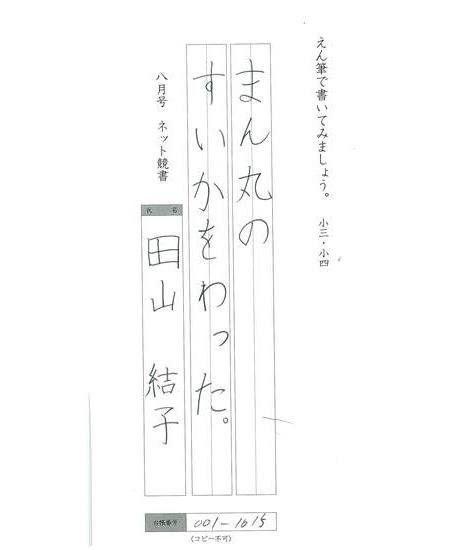 えん筆で書いてみましょう。 小三・小四
まん丸の
すいかをわった。
八月号 ネット競書
氏名 田山 結子
台帳番号 001-1615
(コピー不可)